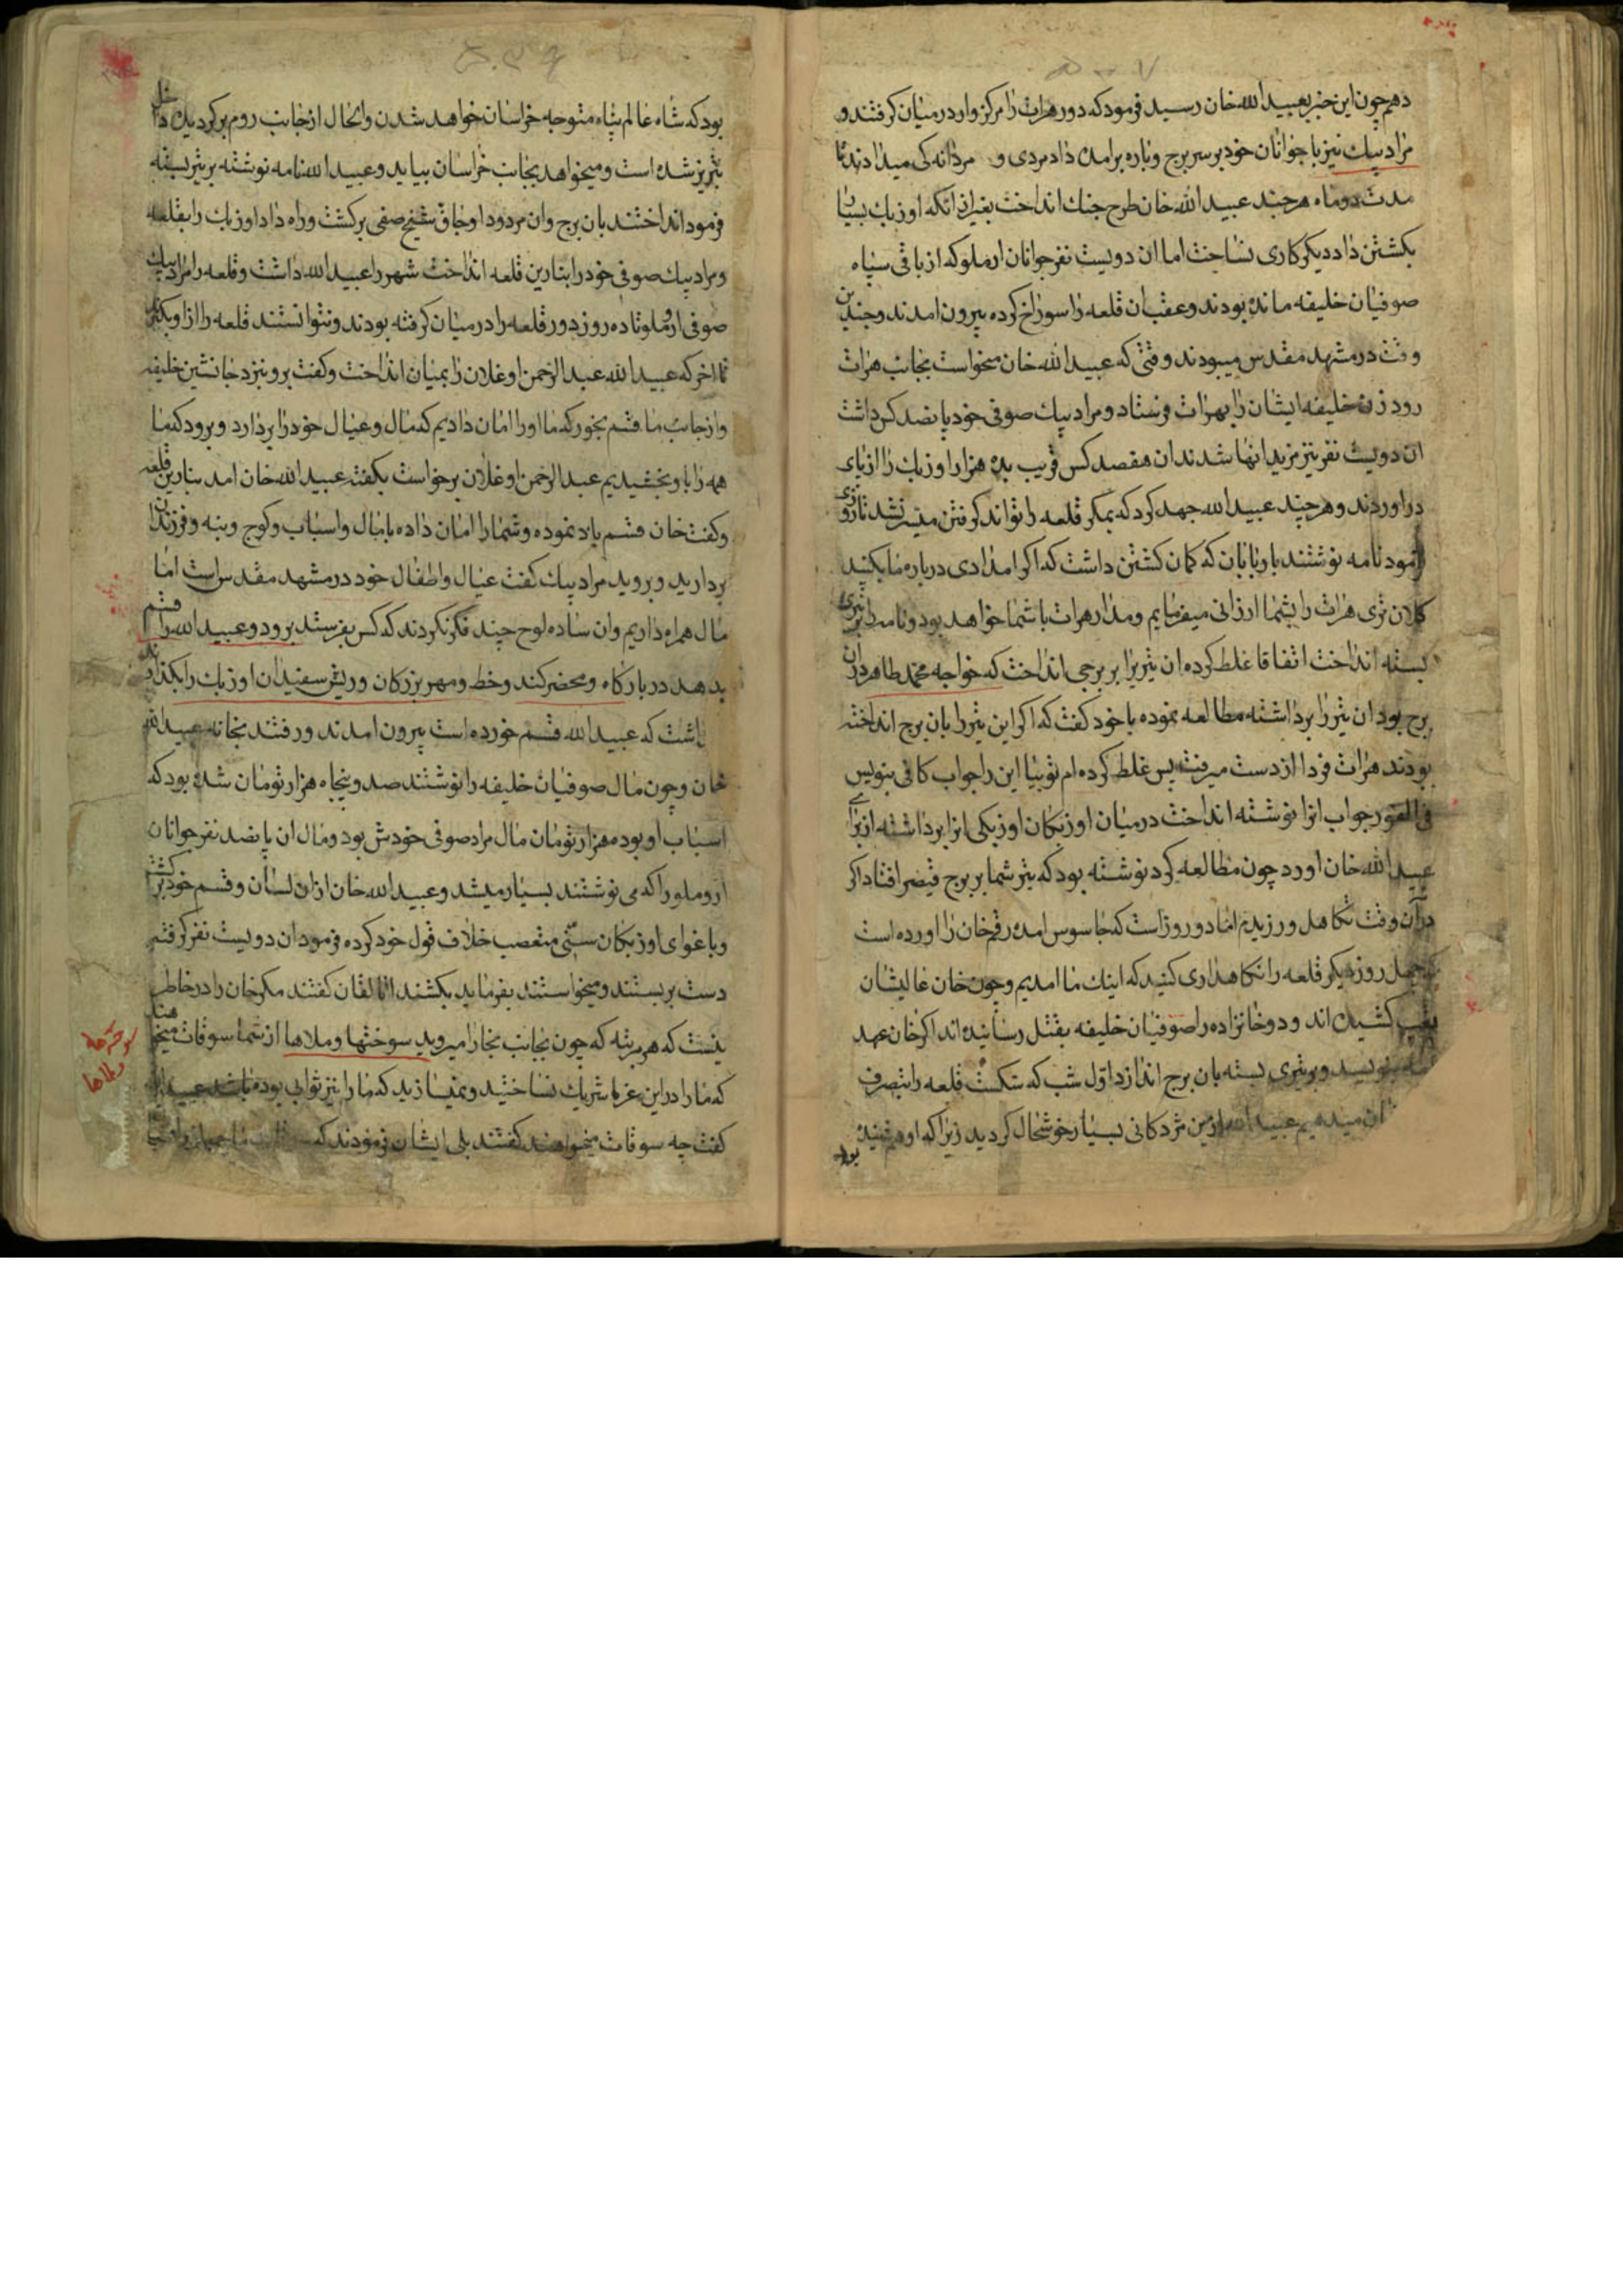 دهم چون این خبر بعبید الله خان رسید فرمود که دور هرات را مرکز وار در میان گرفتند و
مراد بیک نیز با جوانان خود بر سر برج و باره برامده داد مردی و مردانه کی میدادند تا
مدت دو ماه هر چند عبید الله خان طرح جنک انداخت بغیر از انکه اوزبک بسیار
بکشتن داد دیکر کاری نساخت اما ان دویست نفر جوانان ارملو که از باقی سپاه
صوفیان خلیفه مانده بودند و عقب ان قلعه را سوراخ کرده بیرون امدند و چندین
وقت در مشهد مقدس میبودند وقتی که عبید الله خان میخواست بجانب هرات
رود زن خلیفه ایشان را بهرات فرستاد و مراد بیک صوفی خود پانصد کس داشت
ان دویست نفر نیز مزید انها شدند ان هفصد کس قریب بده هزار اوزبک را از پای
دراوردند و هر چند عبید الله جهد کرد که بمکر قلعه را تواند کرفتن میسر نشد تا روزی
فرمود نامه نوشتند باربابان که کمان کشتن داشت که اکر امدادی درباره ما بکنید
کلان تری هرات را بشما ارزانی میفرمایم و مدار هرات با شما خواهد بود و نامه را بر تیری
بسته انداخت اتفاقا غلط کرده ان تیر را بر برجی انداخت که خواجه محمد طاهر در ان
برج بود ان تیر را برداشته مطالعه نموده با خود کفت که اکر این تیر را بان برج انداخته
بودند هرات فردا از دست میرفت پس غلط کرده ام تو بیا این را جواب کافی بنویس
فی الفور جواب انرا نوشته انداخت در میان اوزبکان اوزبکی انرا برداشته از برای
عبید الله خان اورد چون مطالعه کرد نوشته بود که تیر شما بر برج قیصر افتاد اکر
در آن وقت تکاهل ورزیدم اما دو روز است که جاسوس امده رقم خان را اورده است
که چهل روز دیکر قلعه را نکاهداری کنید که اینک ما امدیم و چون خان عالیشان
کشیده اند و دو خانزاده را صوفیان خلیفه بقتل رسانیده اند اکر خان عهد
نامه بنویسد و بر تیری بسته بان برج اندازد اول شب که شکست قلعه را بتصرف
ان میدهیم عبید الله ازین مژدکانی بسیار خوشحال کردید زیرا که او هم شنیده
بود
بود که شاه عالم پناه متوجه خراسان خواهد شدن و الحال از جانب روم برکردیده داخل
تبریز شده است و میخواهد بجانب خراسان بیاید و عبید الله نامه نوشته بر تیر بسته
فرمود انداختند بان برج و ان مردود اوجاق شیخ صفی برکشت و راه داد اوزبک را بقلعه
و مراد بیک صوفی خود را بنارین قلعه انداخت شهر را عبید الله داشت و قلعه را مراد بیک
صوفی ارملو تا ده روز دور قلعه را در میان کرفته بودند و نتوانستند قلعه را از او بکیرند
تا اخر که عبید الله عبد الرحمن اوغلان را بمیان انداخت و کفت برو بنزد جانشین خلیفه
و از جانب ما قسم بخور که ما او را امان دادیم که مال و عیال خود را بردارد و برود که ما
همه را باو بخشیدیم عبد الرحمن اوغلان برخواست بکفته عبید الله خان امد بنارین قلعه
و کفت خان قسم یاد نموده و شما را امان داده با مال و اسباب و کوچ و بنه و فرزندان
بردارید و بروید مراد بیک کفت عیال و اطفال خود در مشهد مقدس است اما
مال همراه داریم و ان ساده لوح چند فکر نکردند که کس بفرستد برود و عبید الله را قسم
بدهد در بارکاه و محضر کند و خط و مهر بزرکان و ریش سفیدان اوزبک را بکذارند
داشت که عبید الله قسم خورده است بیرون امدند و رفتند بخانه عبید الله
خان و چون مال صوفیان خلیفه را نوشتند صد و پنجاه هزار تومان شده بود که
اسباب او بود و ده هزار تومان مال مراد صوفی خودش بود و مال ان پانصد نفر جوانان
ارملو را که می نوشتند بسیار میشد و عبید الله خان ازان لسان و قسم خود برکشته
و باغوای اوزبکان سنی متعصب خلاف قول خود کرده فرمود ان دویست نفر کرفتم
دست بربستند و میخواستند بفرماید بکشند اتالقان کفتند مکر خان را در خاطر
نیست که هر مرتبه که چون بجانب بخارا میروید سوختها و ملاها از شما سوقات میخواهند
که ما را در این غزا شریک نساختید و نمیسازید که ما را نیز ثوابی بوده باشد عبید الله
کفت چه سوقات میخواهند کفتند بلی ایشان فرمودند که
سوخته ها
و ملاها